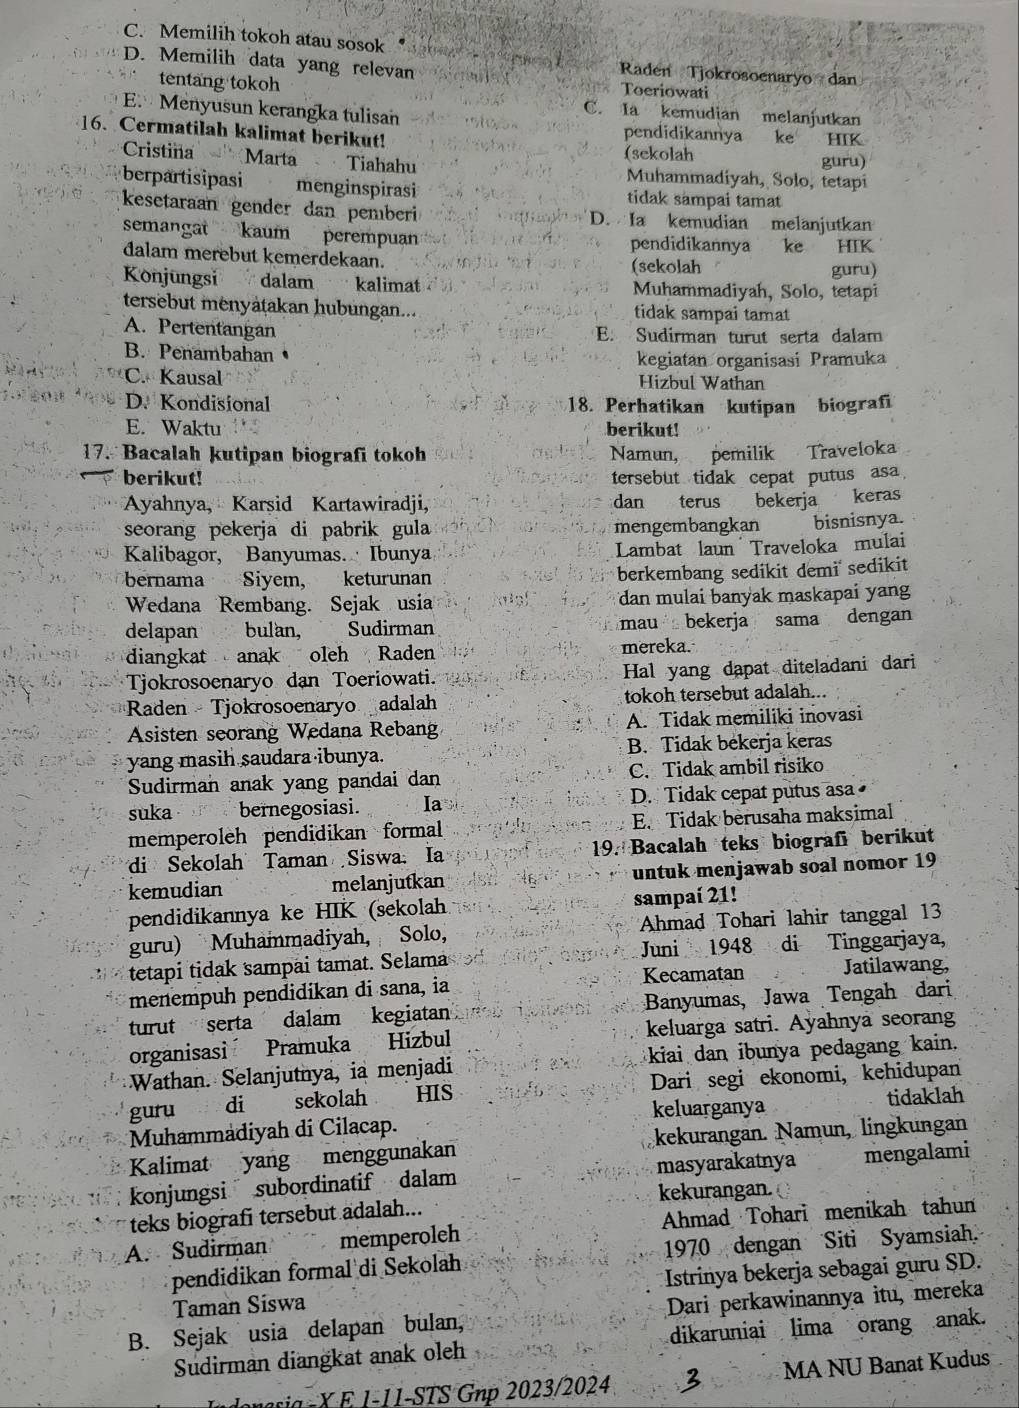 C. Memilih tokoh atau sosok
D. Memilih data yang relevan
tentang tokoh
E. Menyusun kerangka tulisan
16. Cermatilah kalimat berikut!
Cristina Marta Tiahahu
berpartisipasi menginspirasi
kesetaraan gender dan pemberi
semangat kaum perempuan
dalam merebut kemerdekaan.
Konjungsi dalam kalimat
tersebut menyatakan hubungan...
A. Pertentangan
B. Penambahan
C. Kausal
D. Kondisional
E. Waktu
17. Bacalah kutipan biografi tokoh
berikut!
Ayahnya, Karsid Kartawiradji,
seorang pekerja di pabrik gula
Kalibagor, Banyumas. Ibunya
bernama Siyem, keturunan
Wedana Rembang. Sejak usia
delapan bulan, Sudirman
diangkat anak oleh Raden
Tjokrosoenaryo dan Toeriowati.
Raden Tjokrosoenaryo adalah
Asisten seorang Wedana Rebang
yang masih saudara ibunya.
Sudirman anak yang pandai dan
suka bernegosiasi. Ia
memperoleh pendidikan formal
di Sekolah Taman Siswa. Ia
kemudian melanjutkan
pendidikannya ke HIK (sekolah
guru) Muhammadiyah, Solo,
tetapi tidak sampai tamat. Selama
menempuh pendidikan di sana, ia
turut serta dalam kegiatan
organisasi Pramuka Hizbul
Wathan. Selanjutnya, ia menjadi
guru di sekolah HIS
Muhammadiyah di Cilacap.
Kalimat yang menggunakan
konjungsi subordinatif dalam
teks biografi tersebut adalah...
A. Sudirman memperoleh
pendidikan formal di Sekolah
Taman Siswa
B. Sejak usia delapan bulan,
Sudirman diangkat anak oleh
Raden Tjokrosoenaryo dan
Toeriowati
C. Ia kemudian melanjutkan
pendidikannya ke HIK
(sekolah guru)
Muhammadiyah, Solo, tetapi
tidak sampai tamat
D. Ia kemudian melanjutkan
pendidikannya ke HIK
(sekolah guru)
Muhammadiyah, Solo, tetapi
tidak sampai tamat
E. Sudirman turut serta dalam
kegiatan organisasi Pramuka
Hizbul Wathan
18. Perhatikan kutipan biografi
berikut!
Namun, pemilik Traveloka
tersebut tidak cepat putus asa
dan terus bekerja keras
mengembangkan bisnisnya.
Lambat laun Traveloka mulai
berkembang sedikit demi sedikit
dan mulai banyak maskapai yang
mau bekerja sama dengan
mereka.
Hal yang dapat diteladani dari
tokoh tersebut adalah...
A. Tidak memiliki inovasi
B. Tidak bekerja keras
C. Tidak ambil risiko
D. Tidak cepat putus asa
E. Tidak berusaha maksimal
19. Bacalah teks biografi berikut
untuk menjawab soal nomor 19
sampai 21!
Ahmad Tohari lahir tanggal 13
Juni 1948 di Tinggarjaya,
Kecamatan Jatilawang,
Banyumas, Jawa Tengah dari
keluarga satri. Ayahnya seorang
kiai dan ibunya pedagang kain.
Dari segi ekonomi, kehidupan
keluarganya tidaklah
kekurangan. Namun, lingkungan
masyarakatnya mengalami
kekurangan.
Ahmad Tohari menikah tahun
1970 dengan Siti Syamsiah.
Istrinya bekerja sebagai guru SD.
Dari perkawinannya itu, mereka
dikaruniai lima orang anak.
-X E 1-11-STS Gnp 2023/2024 3 MA NU Banat Kudus